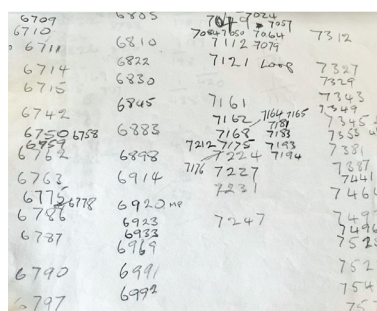 6709
6710
6711
6714
6715
6742
6750 6758
6759
6762
6763
6775
6778
6786
6787
6790
6797
6805
6810
6822
6830
6845
6883
6898
6914
6920 me
6923
6933
6969
6991
6992
7049 7024
7057
7050 7064
7112 7079
7121 Loop
7161
7162 7164 7165
7181
7168 7183
7212 7175 7193
7224 7194
7176 7227
7231
7247
7312
7327
7329
7343
7349
7345
7353
7381
7387
7441
746
749
7496
752
752
754